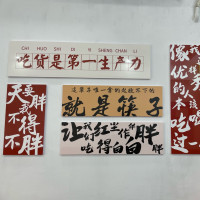 CHI HUO SHI DI YI SHENG CHAN LI
吃货是第一生产力
这辈子唯一拿的起放不下的
就是筷子
天要胖我
不得不胖
让我们红尘作伴
吃得白白胖胖
像
优的人
本
吃过